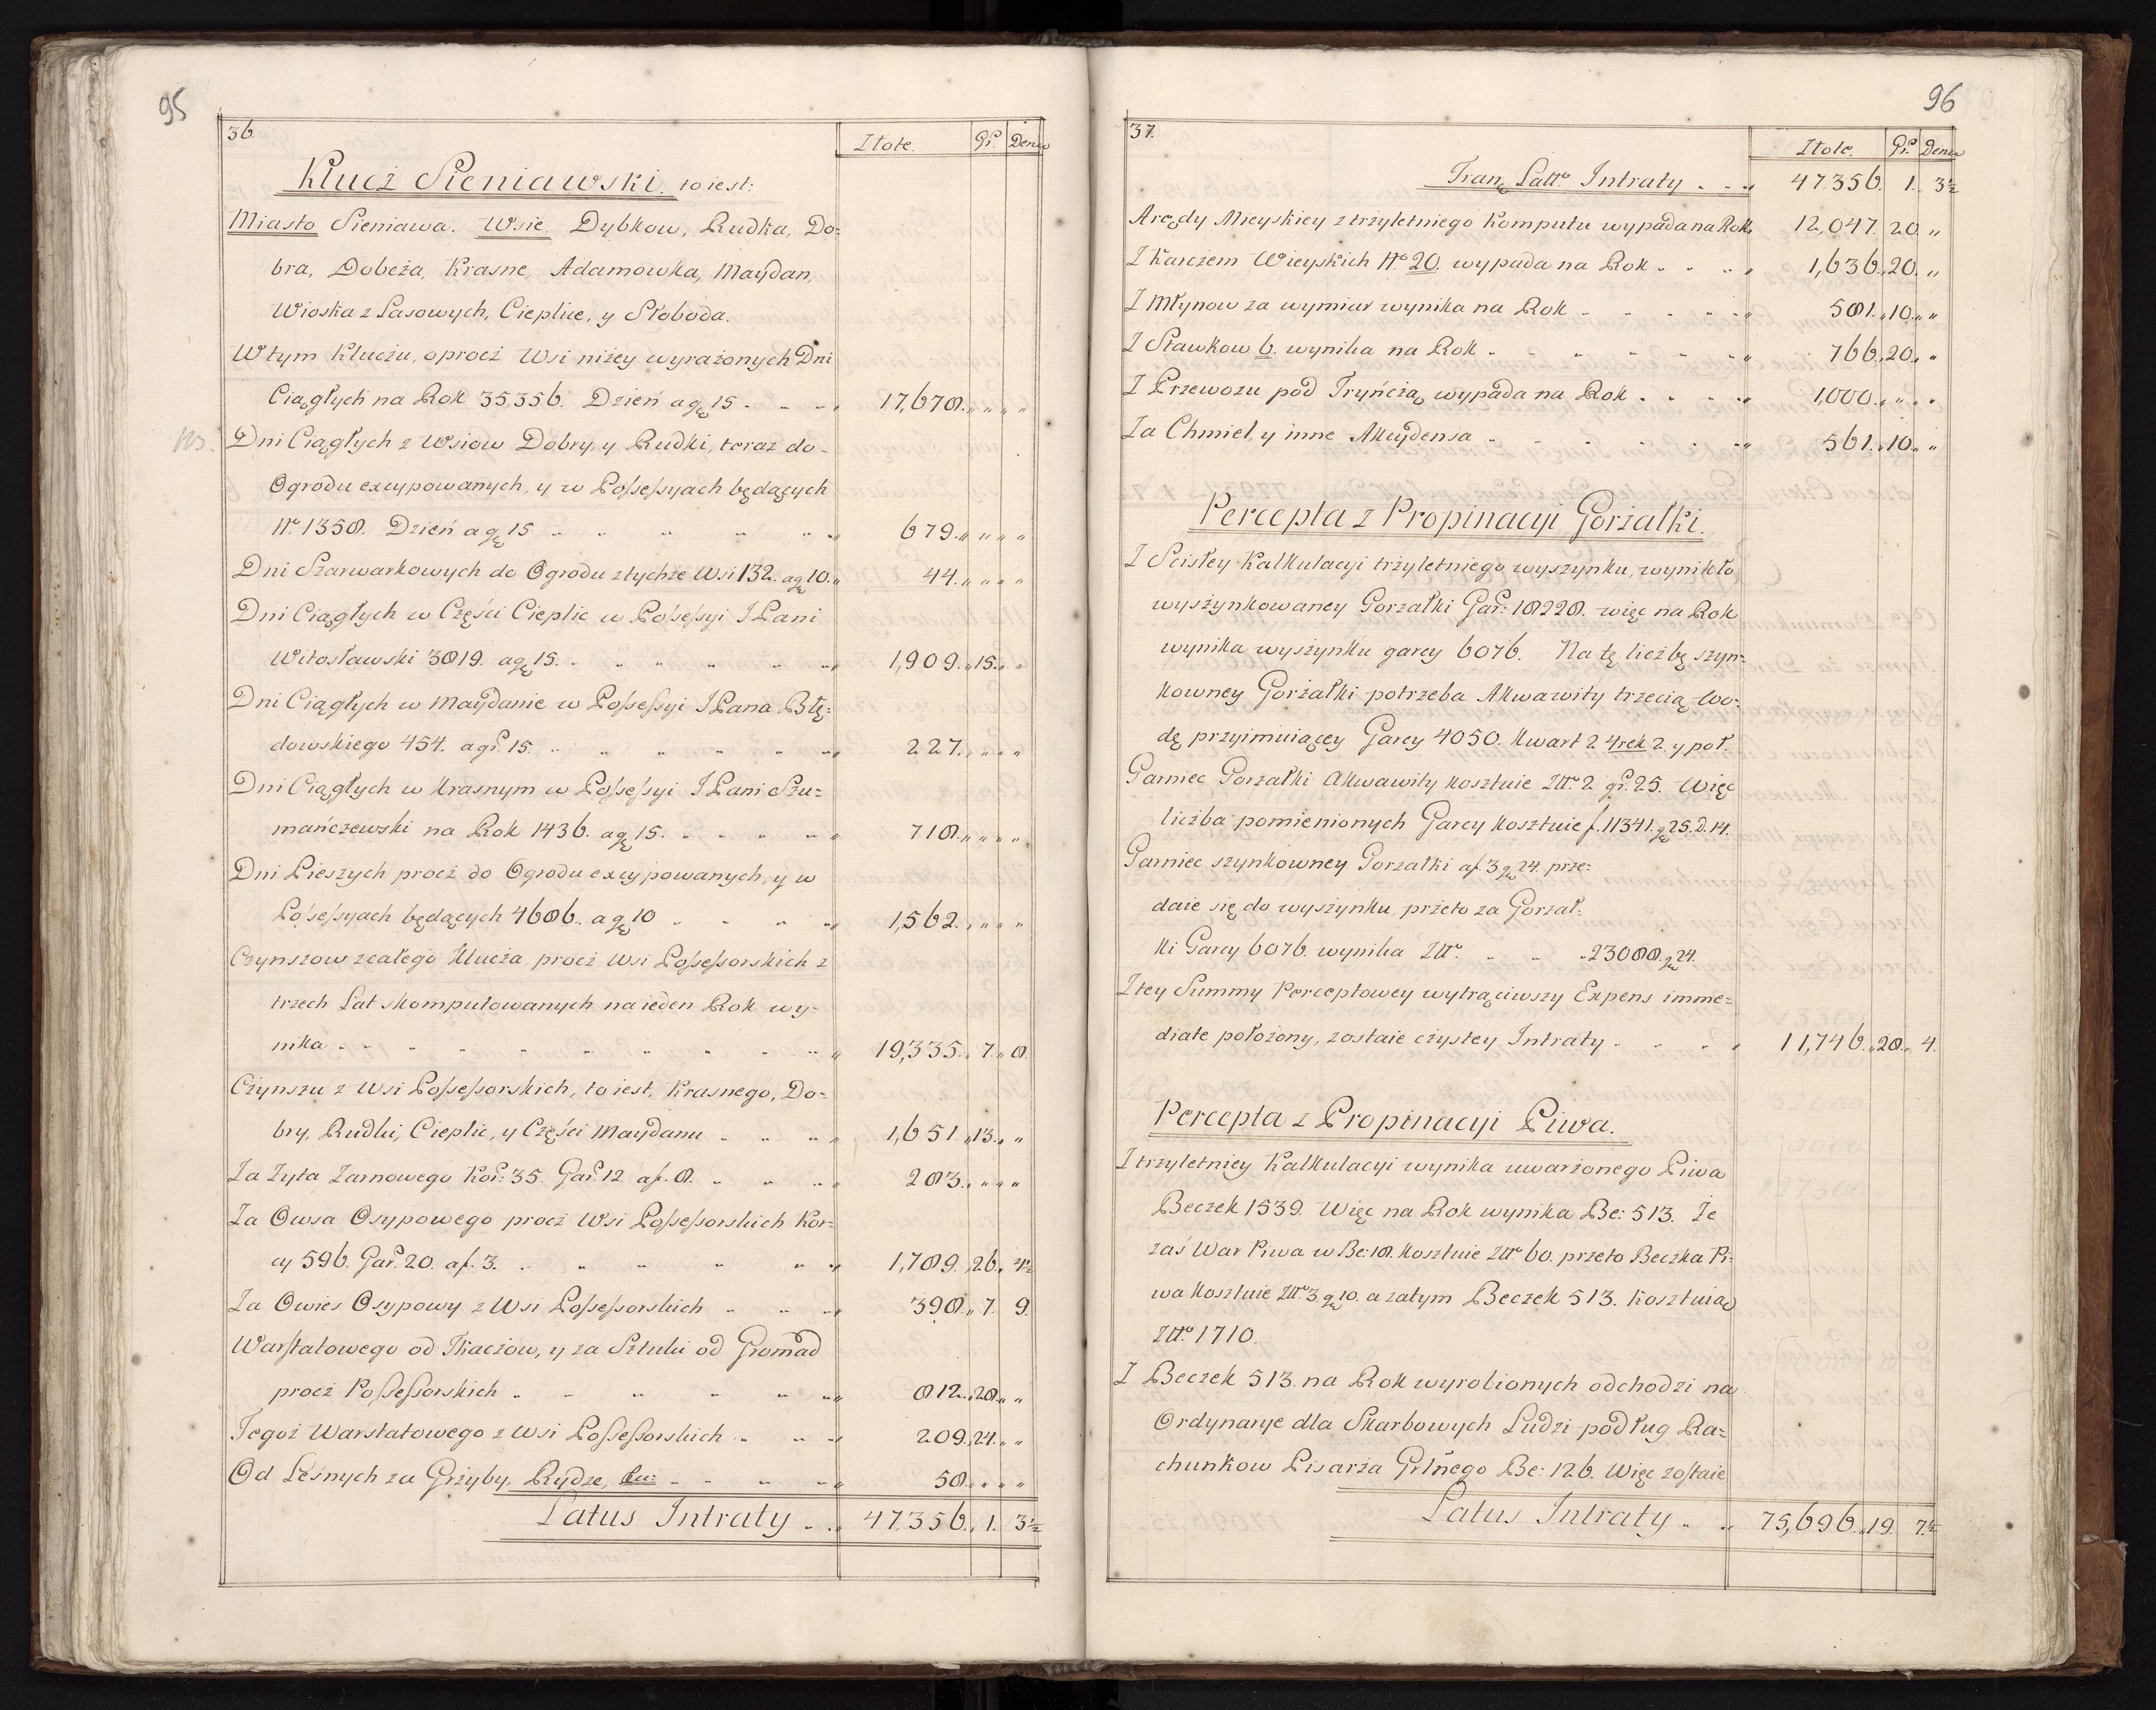 95
36.
Złote. Gr. Denar
Klucz Sieniawski. to iest:
Miasto Sieniawa. Wsie. Dybkow, Rudka, Do=
bra, Dobeża, Krasne, Adamowka, Maydan,
Wioska z Lasowych, Cieplice, y Słoboda.
W tym Kluczu, oprocz Wsi niżey wyrażonych Dni
Ciągłych na Rok 35,356. Dzień a gr. 15 17,678.
Dni Ciągłych z Wsiow Dobry, y Rudki, teraz do-
Ogrodu excypowanych, y w Possessyach będących
No. 1358. Dzień a gr. 15 679.
Dni Szarwarkowych do Ogrodu z tychże Wsi 132. a gr. 10. 44.
Dni Ciągłych w Części Cieplic w Possessyi J Pani
Witosławski 3819. a gr. 15. 1,909. 15.
Dni Ciągłych w Maydanie w Possessyi J Pana Błę=
dowskiego 454. a gr. 15. 227.
Dni Ciągłych w Krasnym w Possessyi J Pani Szu=
mańczewski na Rok 1436. a gr. 15. 718.
Dni Pieszych procz do Ogrodu excypowanych, y w
Possessyach będących 4686. a gr. 10 1,562.
Czynszow z całego Klucza, procz Wsi Possessorskich z
trzech Lat skomputowanych na ieden Rok wy-
nika 19,335. 7. 8.
Czynszu z Wsi Possessorskich, to iest, Krasnego, Do=
bry, Rudki, Cieplic, y Części Maydanu 1,651. 13.
Za Zyta Zarnowego Kor: 35. Gar. 12. a f. 8. 283.
Za Owsa Osypowego procz Wsi Possessorskich Kor=
cy 596. Gar. 20. a f. 3. 1,789. 26. 4½
Za Owies Osypowy z Wsi Possessorskich 398. 7. 9.
Warstatowego od Tkaczow, y za Sztuki od Gromad
procz Possessorskich 812. 28.
Tegoż Warstatowego z Wsi Possessorskich 209. 24.
Od Leśnych za Grzyby, Rydze, 58.
Latus Intraty 47,356. 1. 3½
96
37.
Złote. Gr. Denar
Tran. Latt. Intraty 47356. 1. 3½
Arędy Mieyskiey z trzyletniego Komputu wypada na Rok 12,047. 20.
Z Karczem Wieyskich No. 20. wypada na Rok 1,636. 20.
Z Młynow za wymiar wynika na Rok 581. 10.
Z Stawkow 6. wynika na Rok 766. 20.
Z Przewozu pod Tryńczą, wypada na Rok 1,000.
Za Chmiel, y inne Akcydensa 561. 10.
Percepta z Propinacyi Gorzałki.
Z Scisłey Kalkulacyi trzyletniego wyszynku, wynikło
wyszynkowaney Gorzałki Gar: 18228. więc na Rok
wynika wyszynku garcy 6076. Na tę liczbę szyn=
kowney Gorzałki potrzeba Akwawity trzecią wo=
dę przyimuiącey Garcy 4050. Kwart 2 4rek 2. y poł.
Garniec Gorzałki Akwawity kosztuie Złt. 2. gr. 25. Więc
liczba pomienionych Garcy kosztuie f. 11341. gr. 25. d. 14.
Garniec szynkowney Gorzałki a f. 3 gr. 24. prze=
daie się do wyszynku, przeto za Gorzał=
ki Garcy 6076. wynika Złt. 23088. gr. 24.
Z tey Summy Perceptowey wytrąciwszy Expens imme=
diate położony, zostaie czystey Intraty 11,746. 28. 4.
Percepta z Propinacyi Piwa.
Z trzyletniey Kalkulacyi wynika uwarzonego Piwa
Beczek 1539. Więc na Rok wynika Be: 513. Ze
zaś War Piwa w Be: 18. kosztuie Złt. 60. przeto Beczka Pi=
wa kosztuie Złt. 3. gr. 10. a zatym Beczek 513. kosztuią
Złt. 1710.
Z Beczek 513. na Rok wyrobionych odchodzi na
Ordynarye dla Skarbowych Ludzi podług Ra=
chunkow Pisarza Grłnego Be: 126. Więc zostaie
Latus Intraty 75,696. 19. 7½